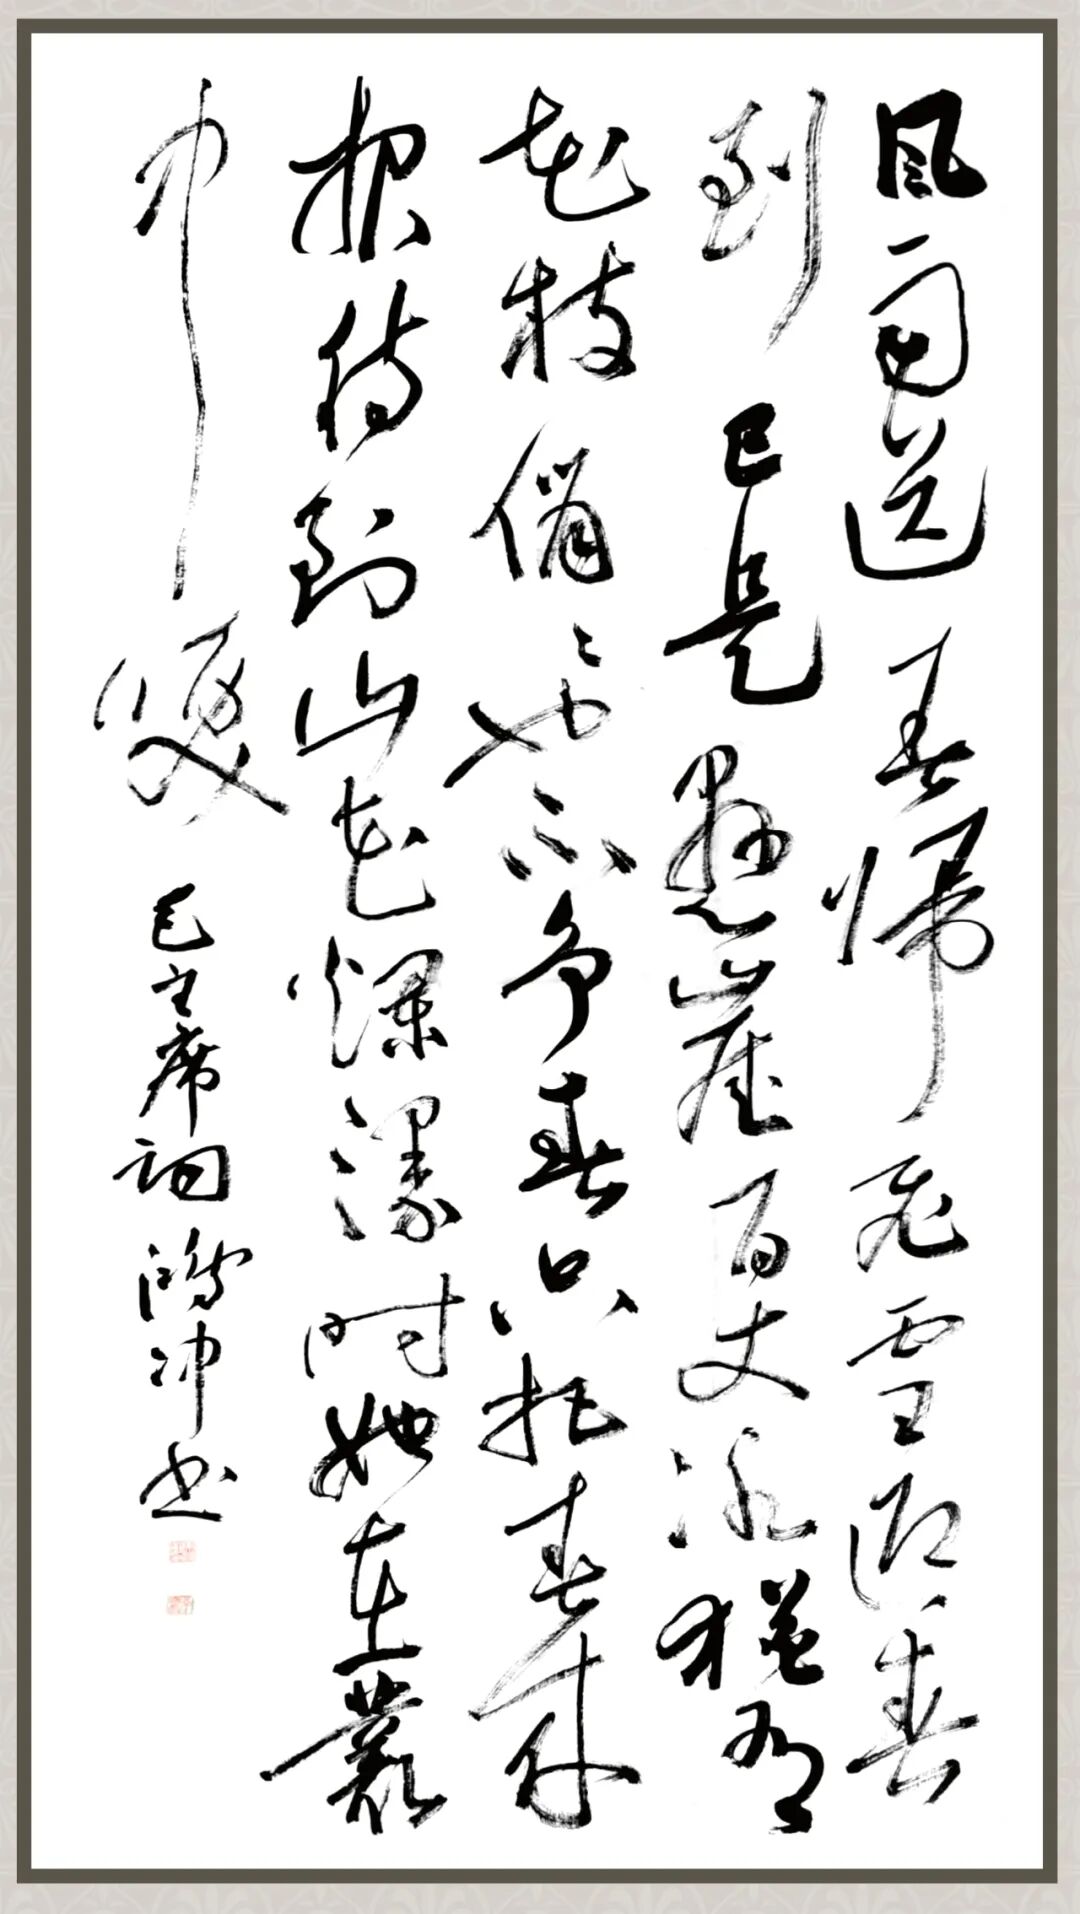 風雨送春歸飛雪迎春
到已是懸崖百丈冰猶有
花枝俏〻也不争春只把春来
報待到山花爛漫时她在叢
中 毛主席词鴻冲书